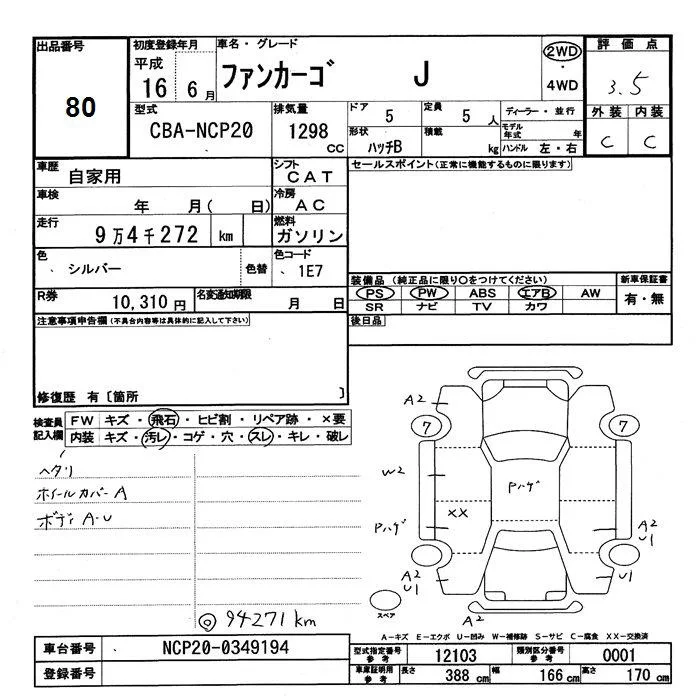 出品番号
80
初度登録年月
平成
16 6月
車名・グレード
ファンカーゴ J
2WD
・
4WD
評価点
3.5
外装 内装
C C
型式
CBA-NCP20
排気量
1298 cc
ドア 5
定員 5 人
形状 ハッチB
積載 kg
ディーラー・並行
モデル年式 年
ハンドル 左・右
車歴
自家用
シフト
CAT
セールスポイント(正常に機能するものに限ります)
車検
年 月( 日)
冷房
AC
走行
9万4千272 km
燃料
ガソリン
色
シルバー
色替
色コード
1E7
R券
10,310 円
名変通知期限
月 日
装備品(純正品に限り○をつけてください)
PS PW ABS エアB AW
SR ナビ TV カワ
新車保証書
有・無
後日品
注意事項申告欄(不具合内容等は具体的に記入して下さい)
修復歴 有〔箇所 〕
検査員記入欄
FW キズ・飛石・ヒビ割・リペア跡・×要
内装 キズ・汚レ・コゲ・穴・スレ・キレ・破レ
ヘタリ
ホイールカバーA
ボディA-U
◎94271km
A2
7
7
W2
Pハゲ
XX
Pハゲ
A2
U1
A2
U1
U1
A2
スペア
A-キズ E-エクボ U-凹み W-補修跡 S-サビ C-腐食 XX-交換済
車台番号
NCP20-0349194
登録番号
型式指定番号参考
12103
類別区分番号参考
0001
車庫証明用参考
長さ 388 cm
幅 166 cm
高さ 170 cm